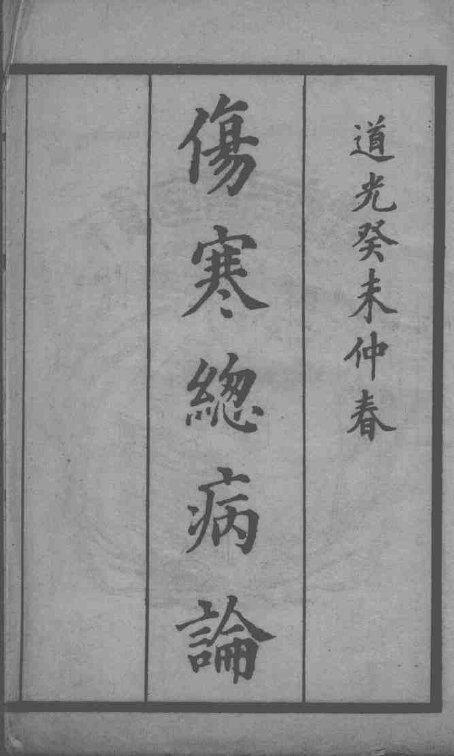 道光癸未仲春
傷寒總病論